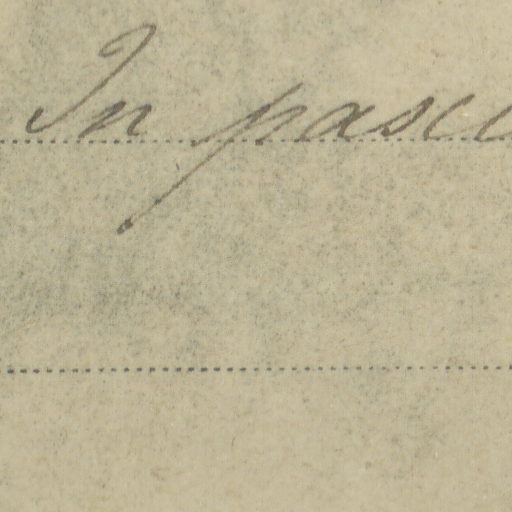 In pascu